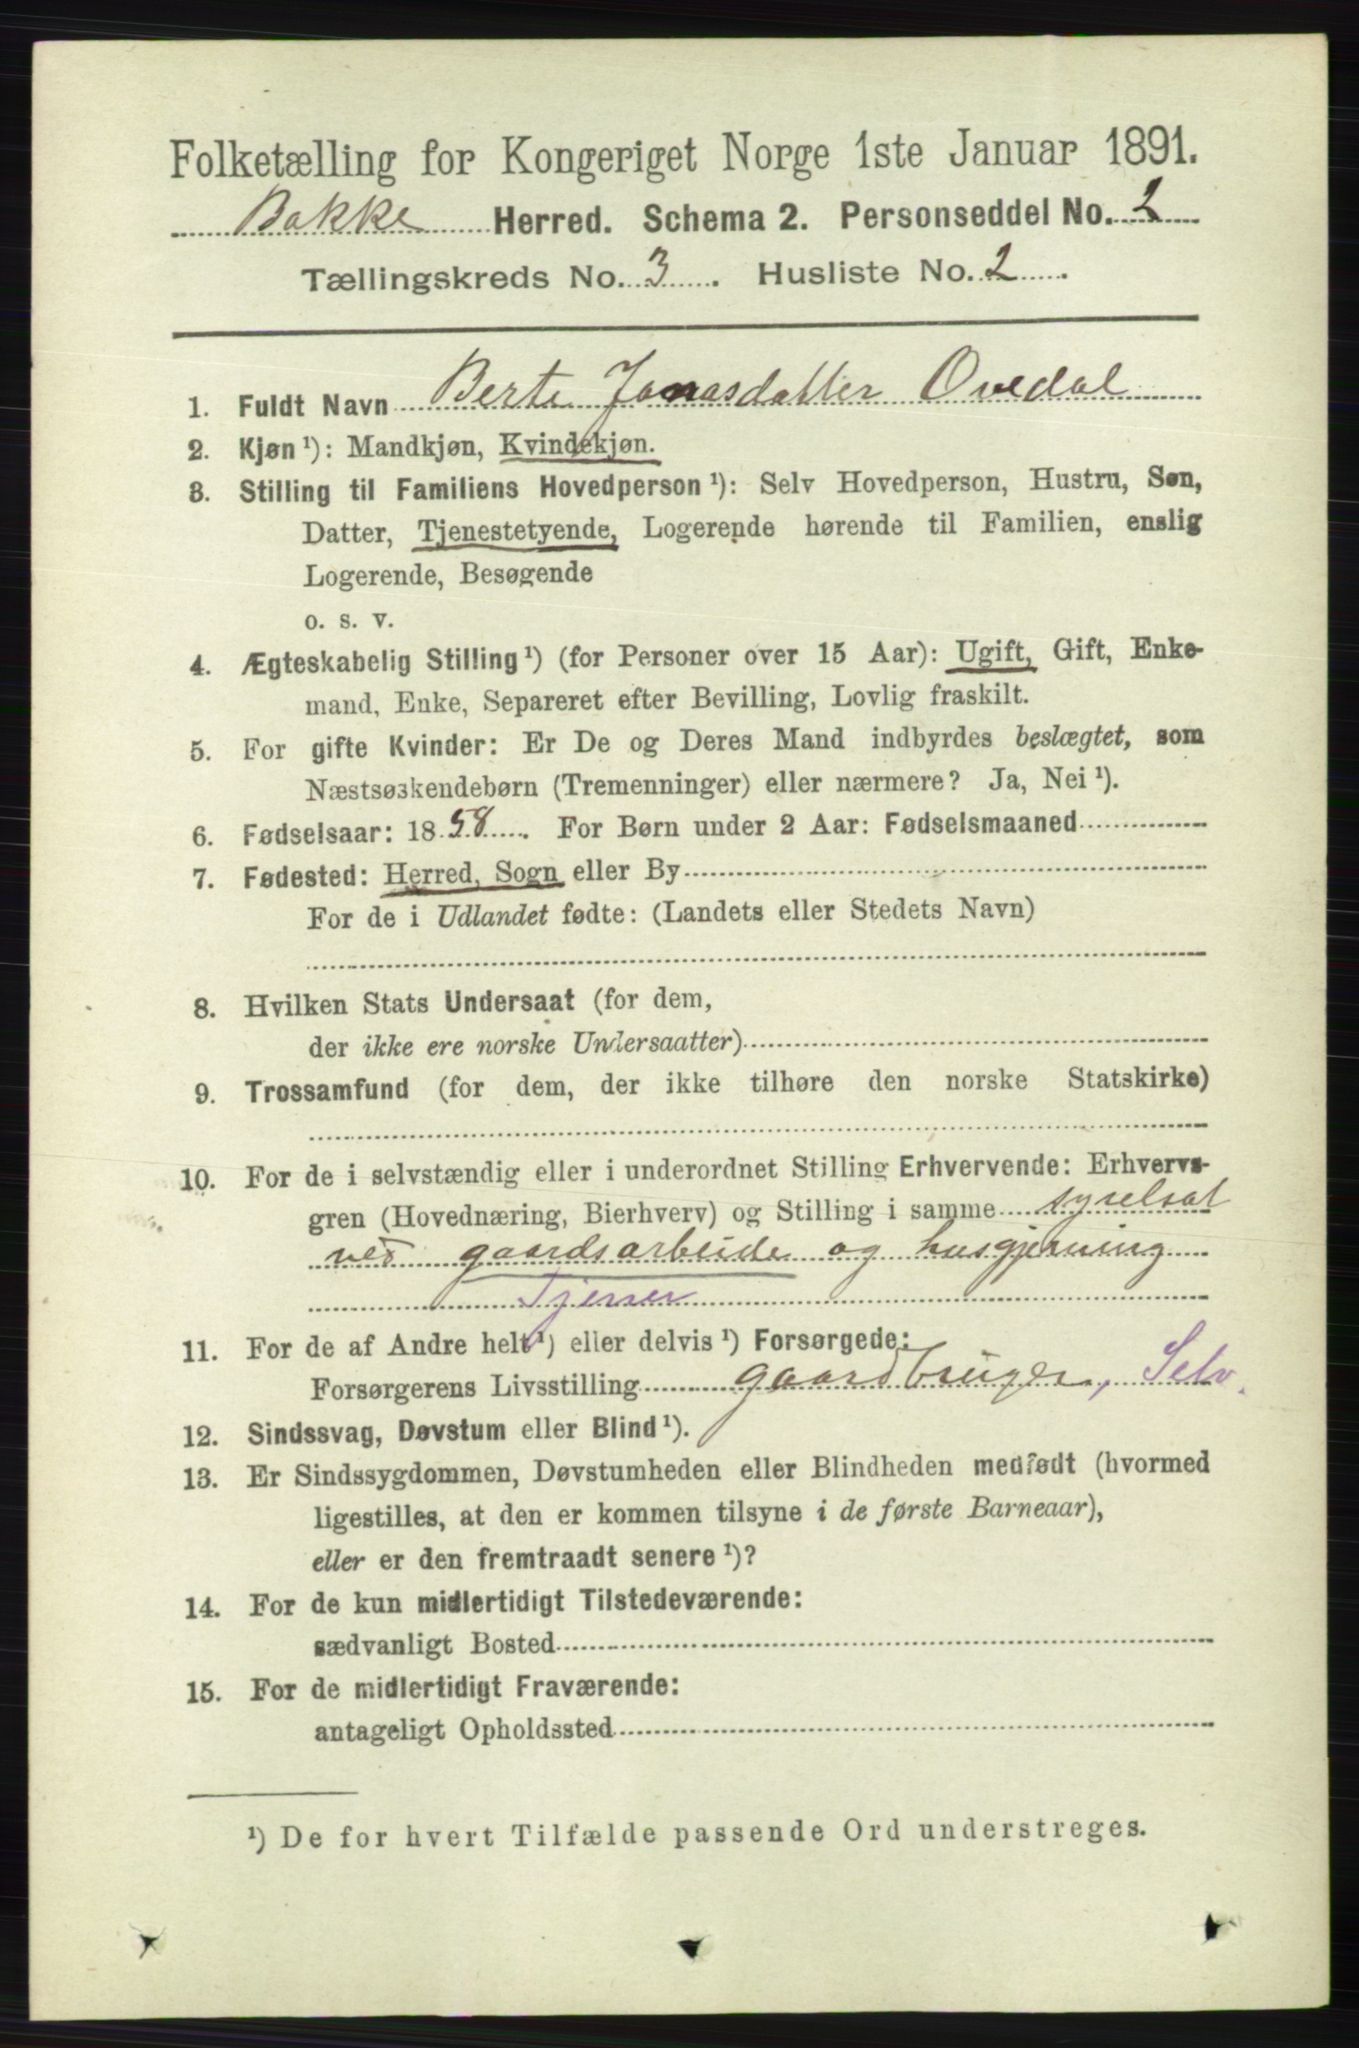 Folketælling for Kongeriget Norge 1ste Januar 1891.
Bakke Herred. Schema 2. Personseddel No. 2
Tællingskreds No. 3. Husliste No. 2.
1. Fuldt Navn Berte Jonasdatter Ovedal
2. Kjøn¹): Mandkjøn, Kvindekjøn.
3. Stilling til Familiens Hovedperson¹): Selv Hovedperson, Hustru, Søn,
Datter, Tjenestetyende, Logerende hørende til Familien, enslig
Logerende, Besøgende
o. s. v.
4. Ægteskabelig Stilling¹) (for Personer over 15 Aar): Ugift, Gift, Enke-
mand, Enke, Separeret efter Bevilling, Lovlig fraskilt.
5. For gifte Kvinder: Er De og Deres Mand indbyrdes beslægtet, som
Næstsøskendebørn (Tremenninger) eller nærmere? Ja, Nei¹).
6. Fødselsaar: 1858. For Børn under 2 Aar: Fødselsmaaned
7. Fødested: Herred, Sogn eller By
For de i Udlandet fødte: (Landets eller Stedets Navn)
8. Hvilken Stats Undersaat (for dem,
der ikke ere norske Undersaatter)
9. Trossamfund (for dem, der ikke tilhøre den norske Statskirke)
10. For de i selvstændig eller i underordnet Stilling Erhvervende: Erhvervs-
gren (Hovednæring, Bierhverv) og Stilling i samme syselsat
ved gaardsarbeide og husgjerning
Tjener
11. For de af Andre helt¹) eller delvis¹) Forsørgede:
Forsørgerens Livsstilling gaardbruger, Selv.
12. Sindssvag, Døvstum eller Blind¹).
13. Er Sindssygdommen, Døvstumheden eller Blindheden medfødt (hvormed
ligestilles, at den er kommen tilsyne i de første Barneaar),
eller er den fremtraadt senere¹)?
14. For de kun midlertidigt Tilstedeværende:
sædvanligt Bosted
15. For de midlertidigt Fraværende:
antageligt Opholdssted
¹) De for hvert Tilfælde passende Ord understreges.